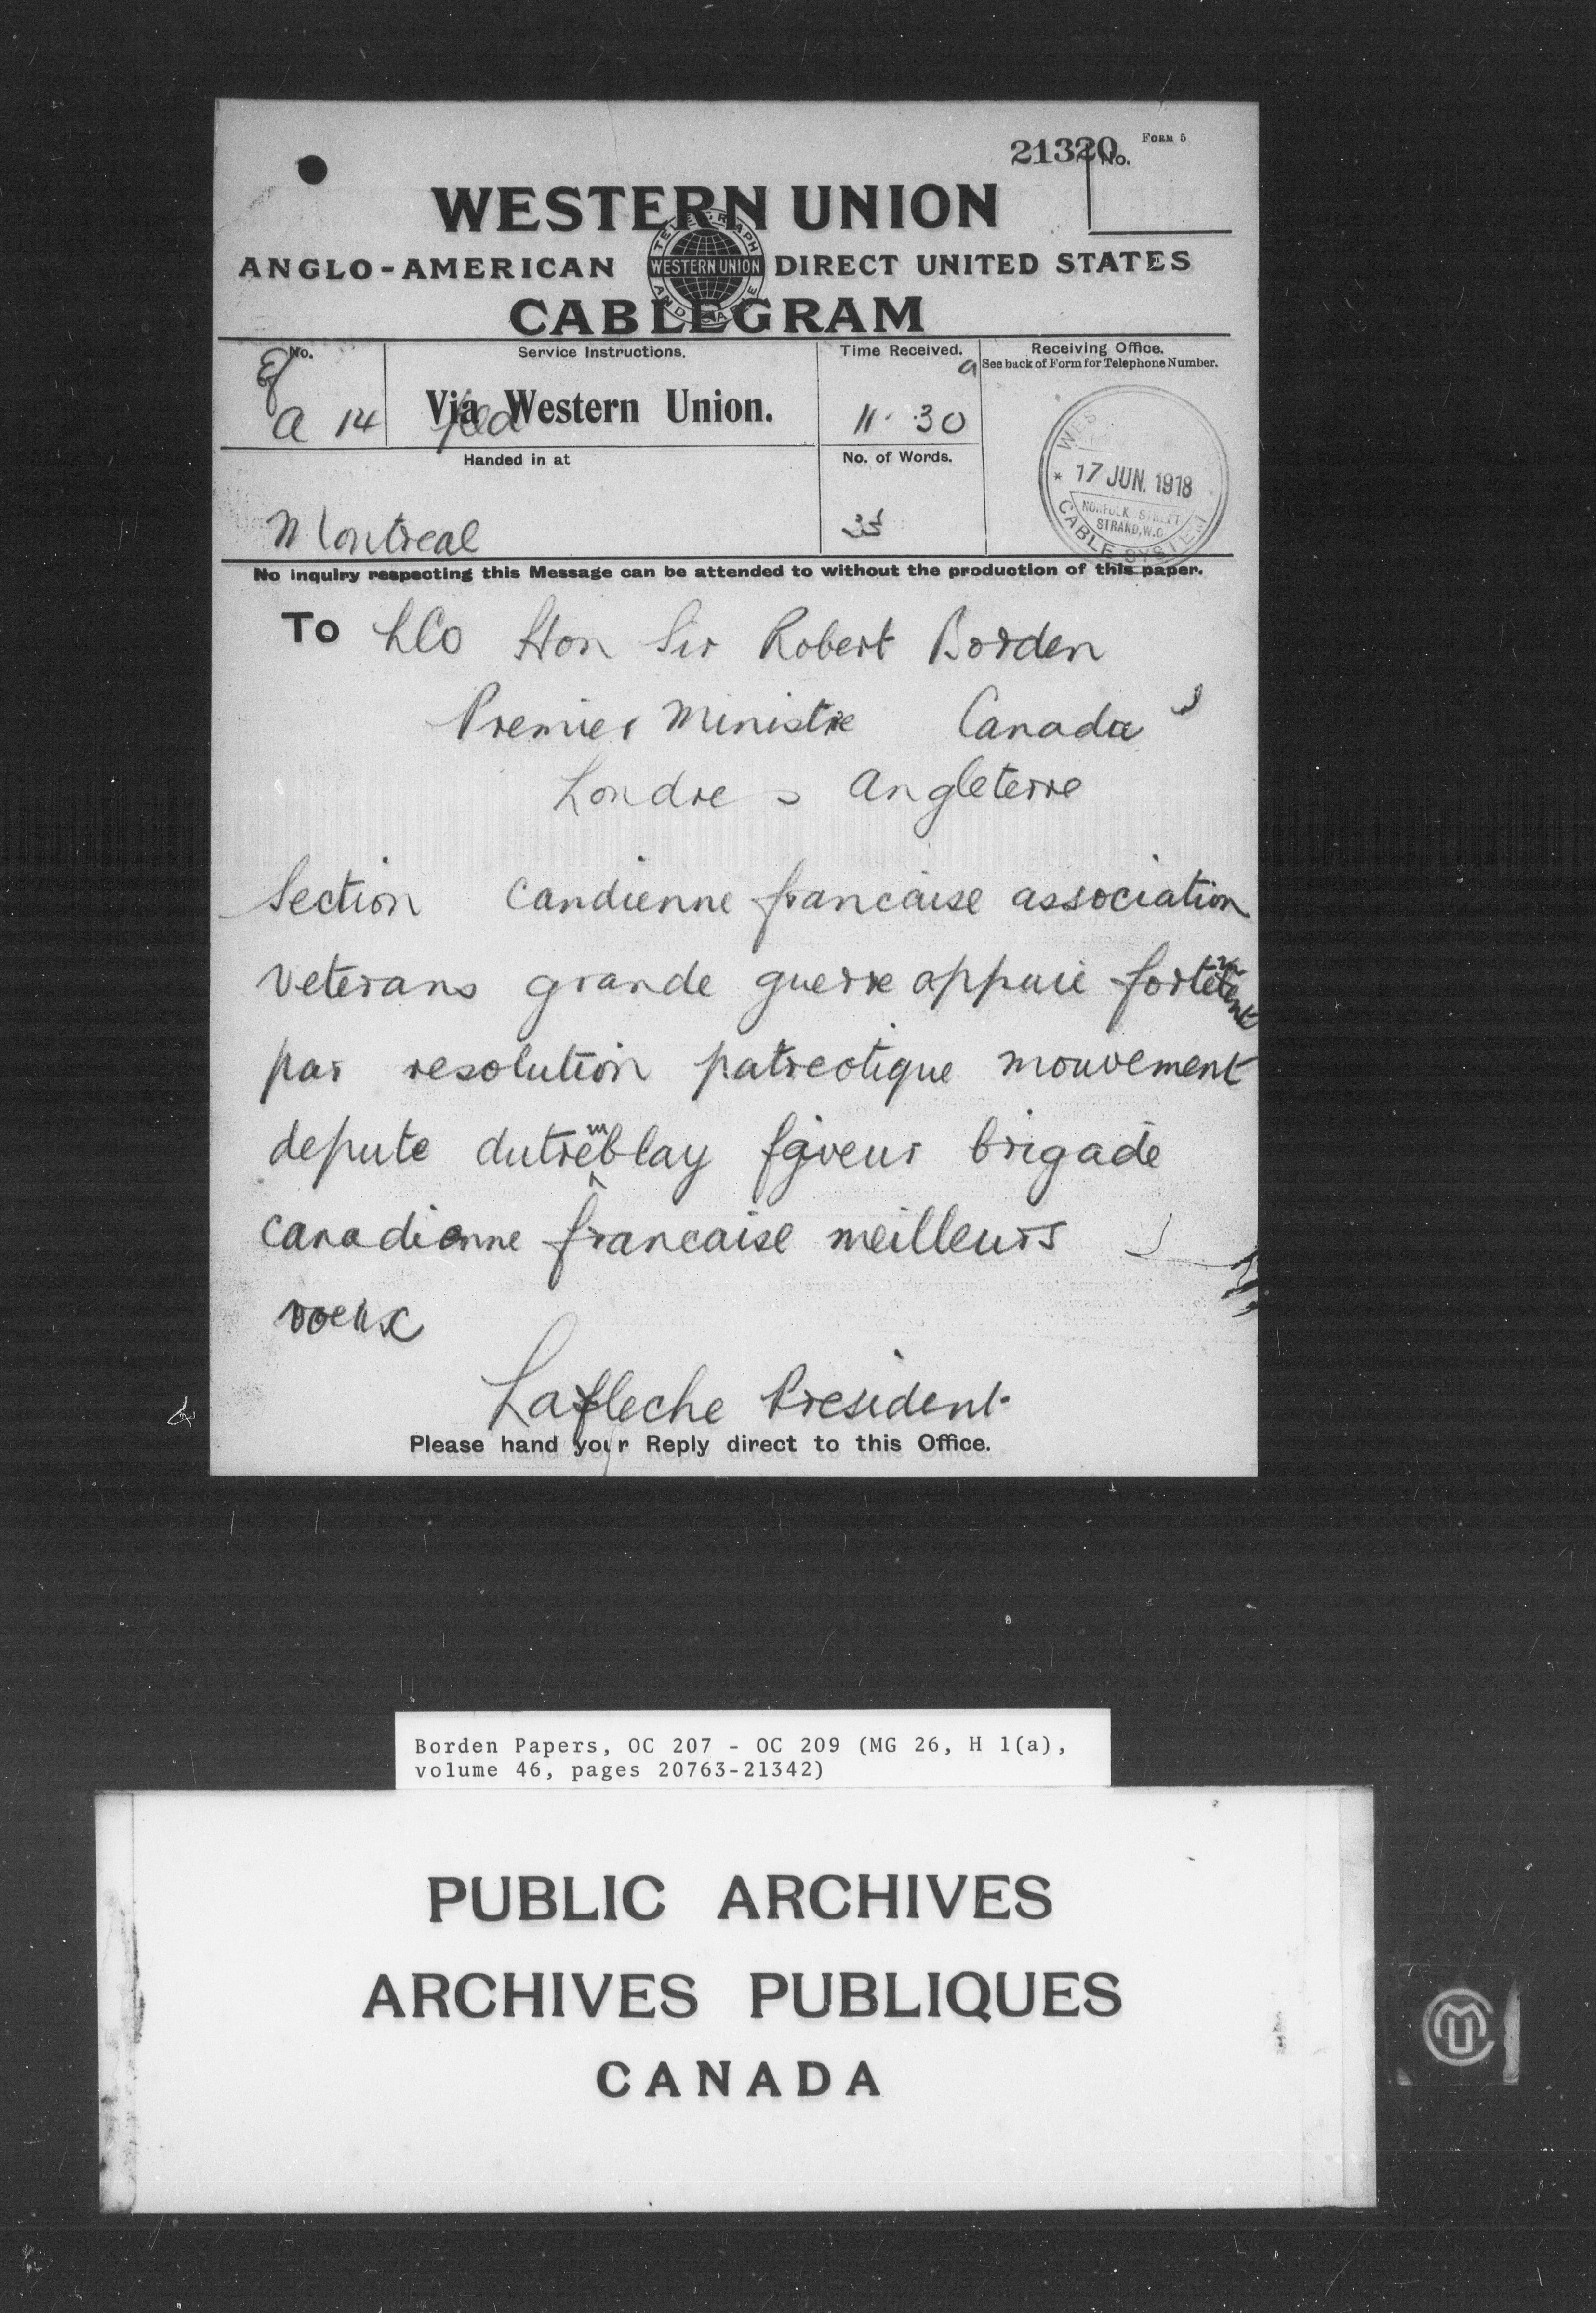 21320
Form 5
No.
WESTERN UNION
TELEGRAPH AND CABLE
WESTERN UNION
ANGLO-AMERICAN DIRECT UNITED STATES
CABLEGRAM
No.
Service Instructions.
Time Received.
Receiving Office.
See back of Form for Telephone Number.
a 14
Via Western Union.
11.30 a
Handed in at
No. of Words.
Montreal
17 JUN. 1918
NORFOLK STREET
STRAND, W.C.
CABLE SYSTEM
No inquiry respecting this Message can be attended to without the production of this paper.
To LCo Hon Sir Robert Borden
Premier Ministre Canada
Londres Angleterre
Section Candienne francaise association
veterans grande guerre appuie
par resolution patreotique mouvement
depute dutremblay faveur brigade
canadienne francaise meilleurs
voeux
Lafleche President
Please hand your Reply direct to this Office.
Borden Papers, OC 207 - OC 209 (MG 26, H 1(a),
volume 46, pages 20763-21342)
PUBLIC ARCHIVES
ARCHIVES PUBLIQUES
CANADA